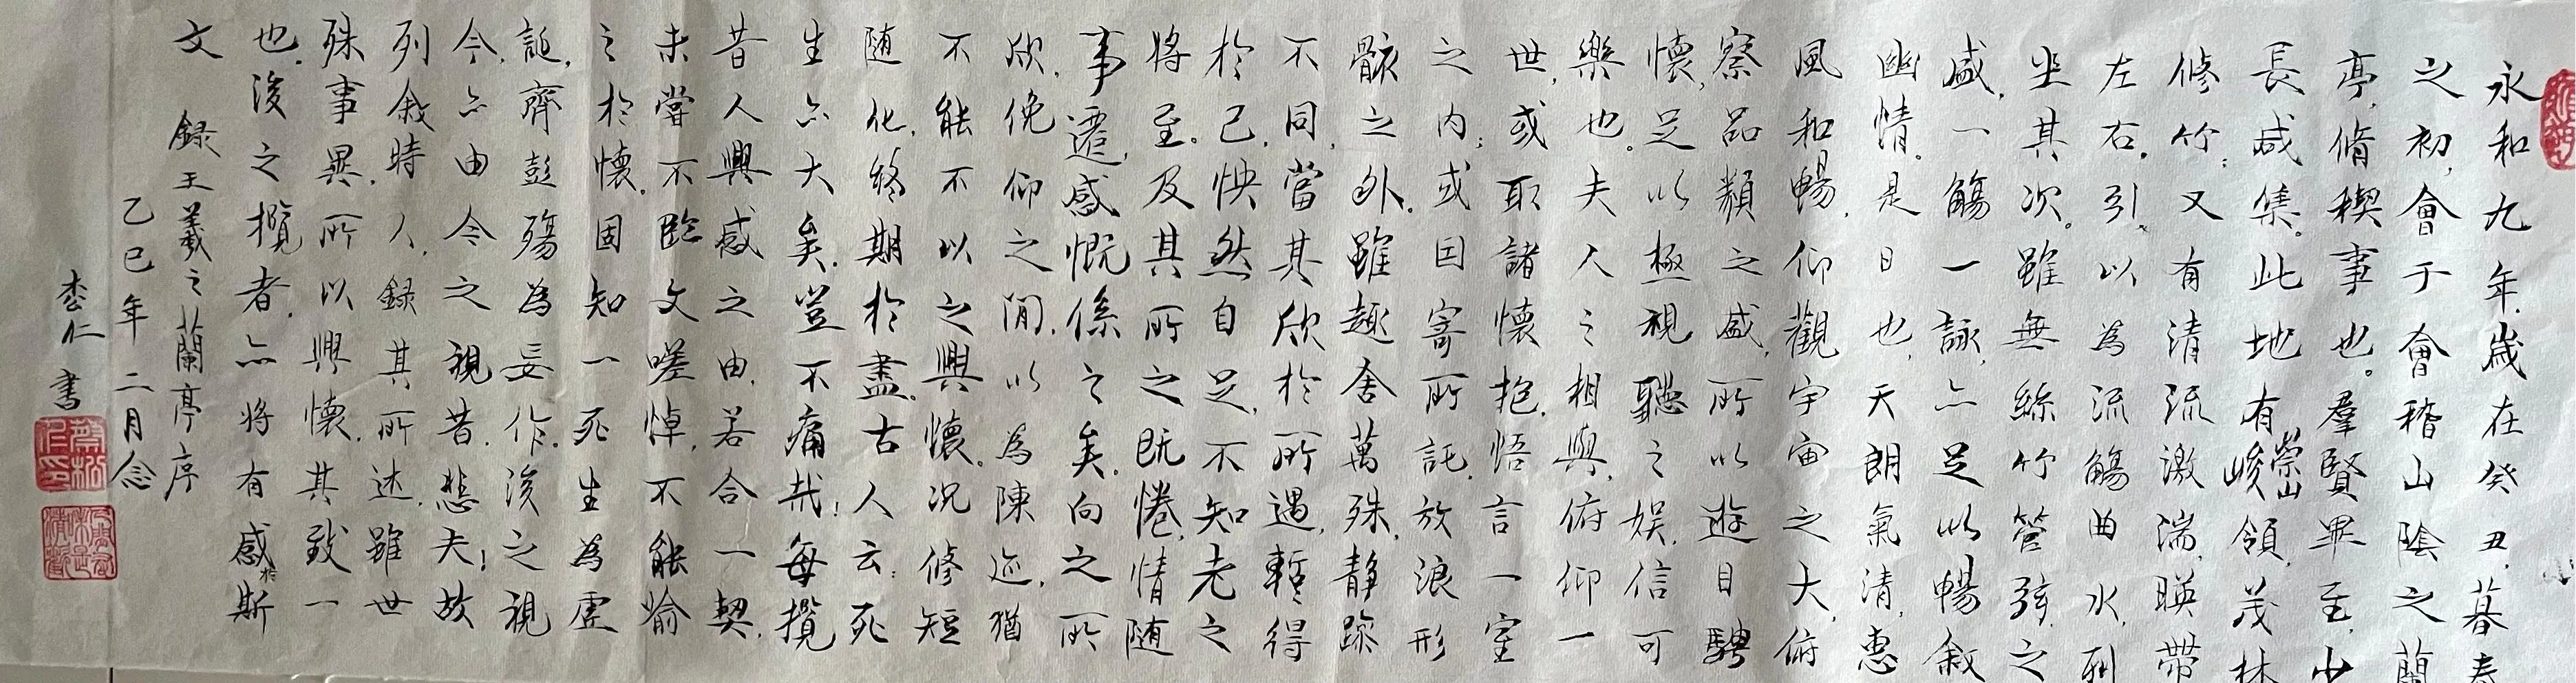 永和九年,歲在癸丑,暮春
之初,會于會稽山陰之蘭
亭,脩稧事也。羣賢畢至,少
長咸集。此地有崇山峻領,茂林
修竹;又有清流激湍,暎帶
左右,引以為流觴曲水,列
坐其次。雖無絲竹管弦之
盛,一觴一詠,亦足以暢敘
幽情。是日也,天朗氣清,惠
風和暢,仰觀宇宙之大,俯
察品類之盛,所以遊目騁
懷,足以極視聽之娛,信可
樂也。夫人之相與,俯仰一
世,或取諸懷抱,悟言一室
之內;或因寄所託,放浪形
骸之外。雖趣舍萬殊,靜躁
不同,當其欣於所遇,暫得
於己,怏然自足,不知老之
將至。及其所之既惓,情随
事遷,感慨係之矣。向之所
欣,俛仰之間,以為陳迹,猶
不能不以之興懷。況修短
随化,終期於盡。古人云:死
生亦大矣。豈不痛哉!每攬
昔人興感之由,若合一契,
未嘗不臨文嗟悼,不能喻
之於懷。固知一死生為虛
誕,齊彭殤為妄作。後之視
今,亦由今之視昔。悲夫!故
列敘時人,錄其所述,雖世
殊事異,所以興懷,其致一
也。後之攬者,亦將有感於斯
文 録王羲之蘭亭序
乙巳年二月念
書